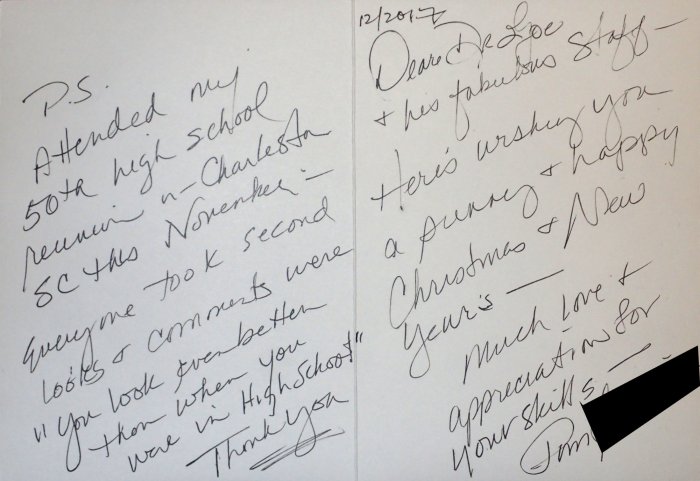 P.S.
Attended my
50th high school
reunion in Charleston
SC this November –
Everyone took second
looks & comments were
"You look even better
than when you
were in High School"
Thank you
12/2017
Dear Dr Lipe
& his fabulous staff –
Here's wishing you
a sunny & happy
Christmas & New
Year's —
Much love &
appreciation for
your skills —